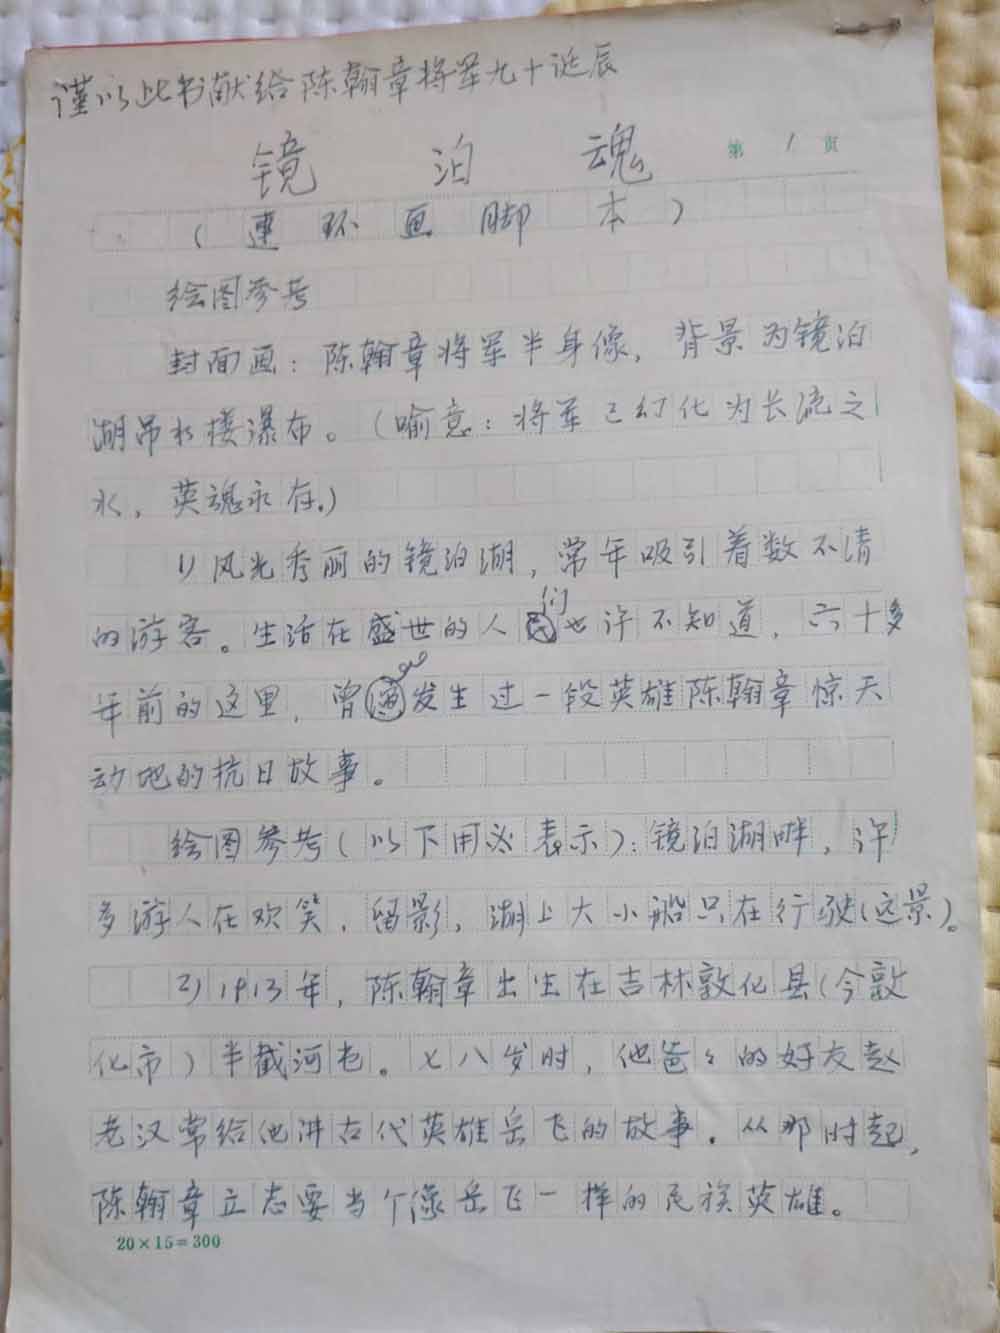 谨以此书献给陈翰章将军九十诞辰
镜泊魂
第1页
(连环画脚本)
绘图参考
封面画:陈翰章将军半身像,背景为镜泊
湖吊水楼瀑布。(喻意:将军已幻化为长流之
水,英魂永存。)
1)风光秀丽的镜泊湖,常年吸引着数不清
的游客。生活在盛世的人们也许不知道,六十多
年前的这里,曾发生过一段英雄陈翰章惊天
动地的抗日故事。
绘图参考(以下用 表示):镜泊湖畔,许
多游人在欢笑,留影,湖上大小船只在行驶(远景)。
2)1913年,陈翰章出生在吉林敦化县(今敦
化市)半截河屯。七八岁时,他爸々的好友赵
老汉常给他讲古代英雄岳飞的故事。从那时起,
陈翰章立志要当个像岳飞一样的民族英雄。
20×15=300